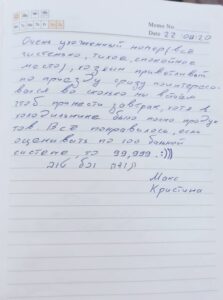 Memo No.
Date 22 08 20
Очень ухоженный номер (всё
чистенько, тихое, спокойное
место), хозяин приветливый
по приезду сразу поинтересо-
вался во сколько мы встаём
чтоб принести завтрак, хотя в
холодильнике было полно продук-
тов. Всё понравилось, если
оценивать по 100 бальной
системе, то 99,999 :)))
Макс
Кристина